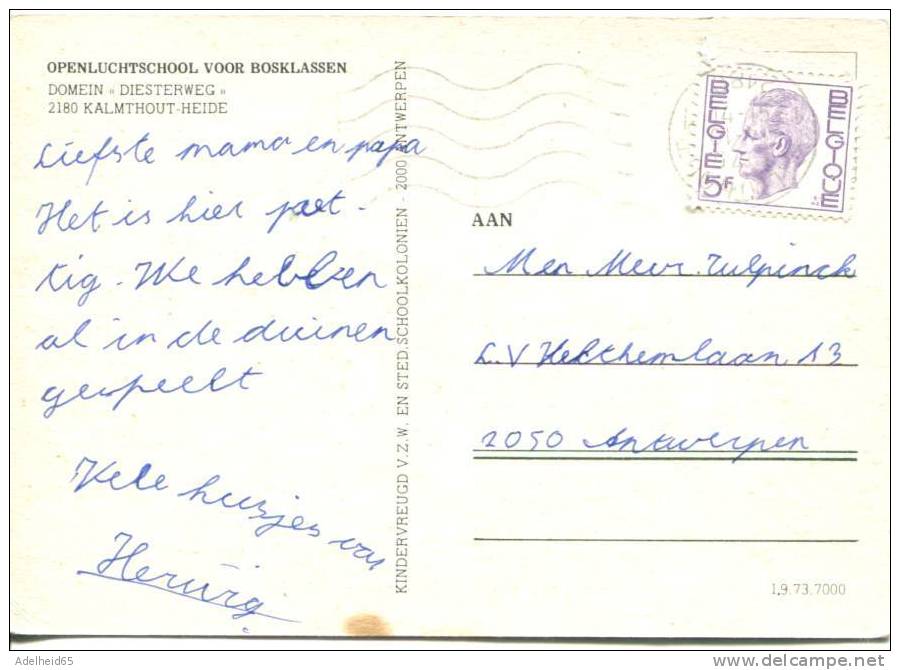 OPENLUCHTSCHOOL VOOR BOSKLASSEN
DOMEIN « DIESTERWEG »
2180 KALMTHOUT-HEIDE
Liefste mama en papa
Het is hier pret-
tig. We hebben
al in de duinen
gespeelt
Vele kusjes van
Herwig
KINDERVREUGD V.Z.W. EN STED. SCHOOLKOLONIEN - 2000 ANTWERPEN
BELGIE 5F
BELGIQUE
AAN
M en Mevr. Tulpinck
L. V 13
2050 Antwerpen
1.9.73.7000
Adelheid65
delcampe.net